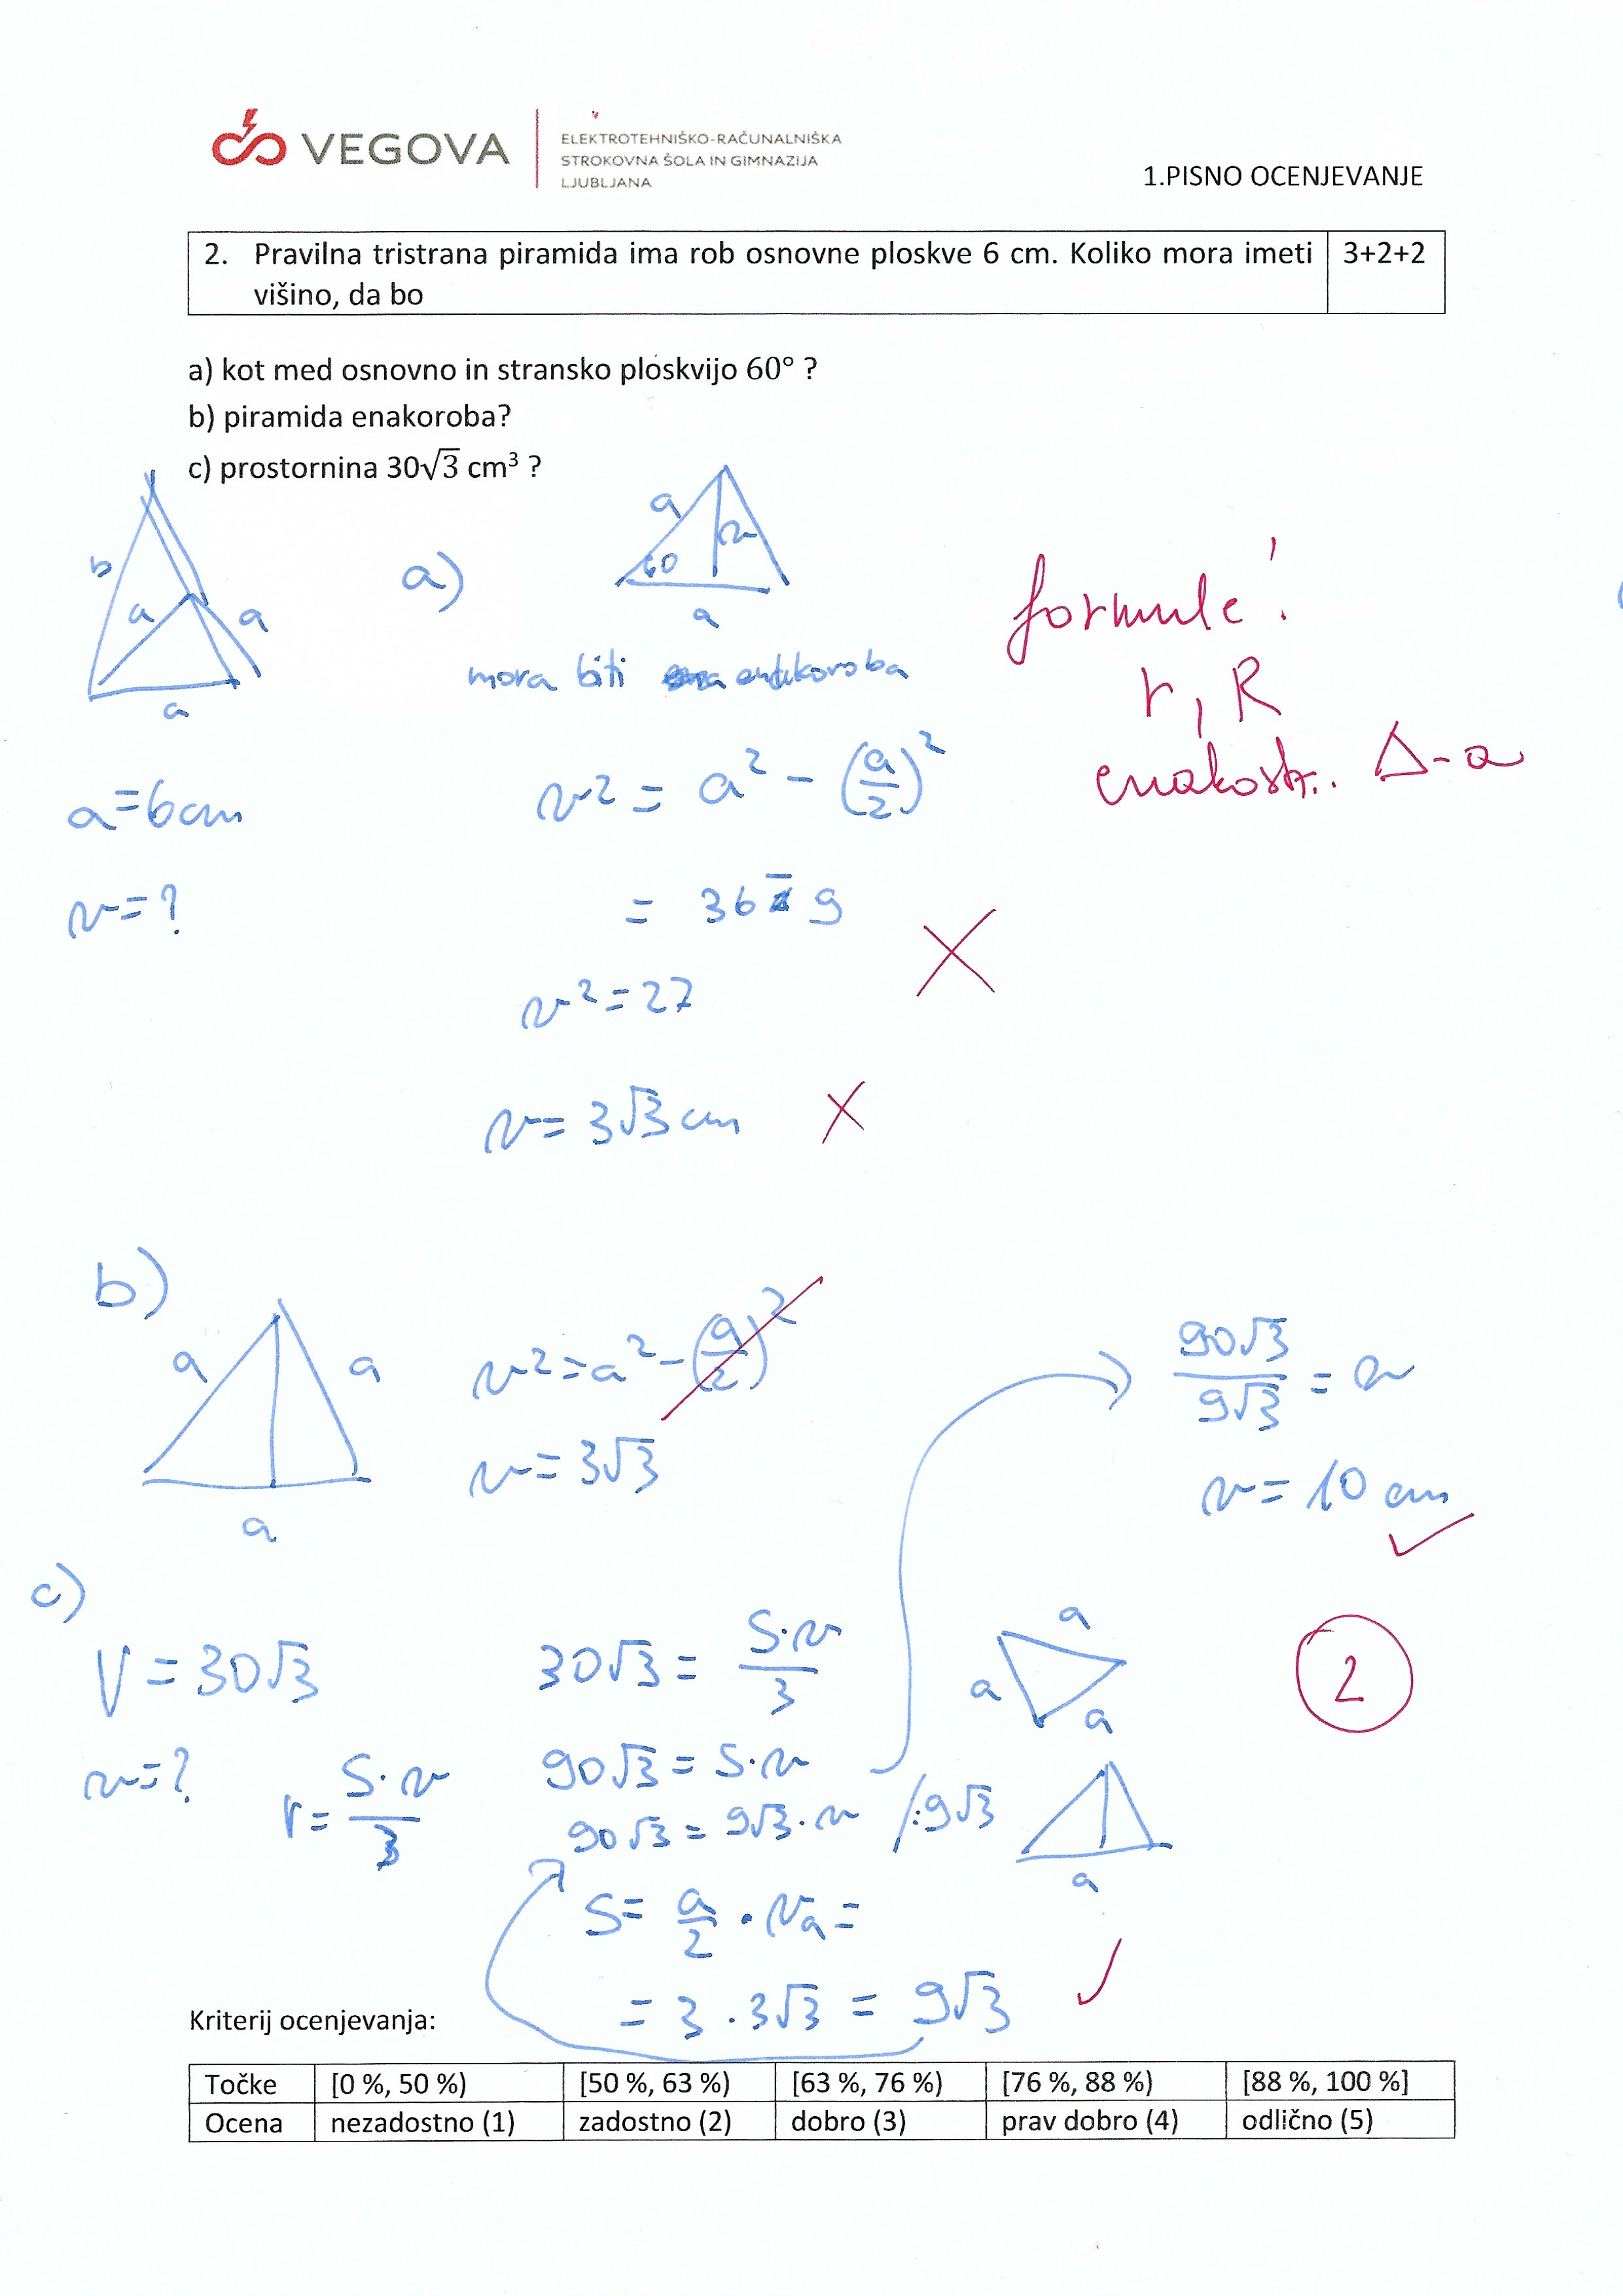 VEGOVA
ELEKTROTEHNIŠKO-RAČUNALNIŠKA
STROKOVNA ŠOLA IN GIMNAZIJA
LJUBLJANA
1.PISNO OCENJEVANJE
2. Pravilna tristrana piramida ima rob osnovne ploskve 6 cm. Koliko mora imeti 3+2+2
višino, da bo
a) kot med osnovno in stransko ploskvijo 60° ?
b) piramida enakoroba?
c) prostornina 30√3 cm³ ?
b
a
a
a
a)
a
60
v
a
mora biti enakoroba
formule!
r, R
enakostr. Δ-a
a=6cm
v=?
v² = a² - (a/2)²
= 36 - 9
v² = 27
v = 3√3 cm
b)
a
a
a
v² = a² - (a/2)²
v = 3√3
90√3 / 9√3 = v
v = 10 cm
c)
V = 30√3
v=?
V = S·v / 3
30√3 = S·v / 3
90√3 = S·v
90√3 = 9√3·v /:9√3
S = a/2 · va =
= 3 · 3√3 = 9√3
a
a
a
a
2
Kriterij ocenjevanja:
Točke [0 %, 50 %) [50 %, 63 %) [63 %, 76 %) [76 %, 88 %) [88 %, 100 %]
Ocena nezadostno (1) zadostno (2) dobro (3) prav dobro (4) odlično (5)